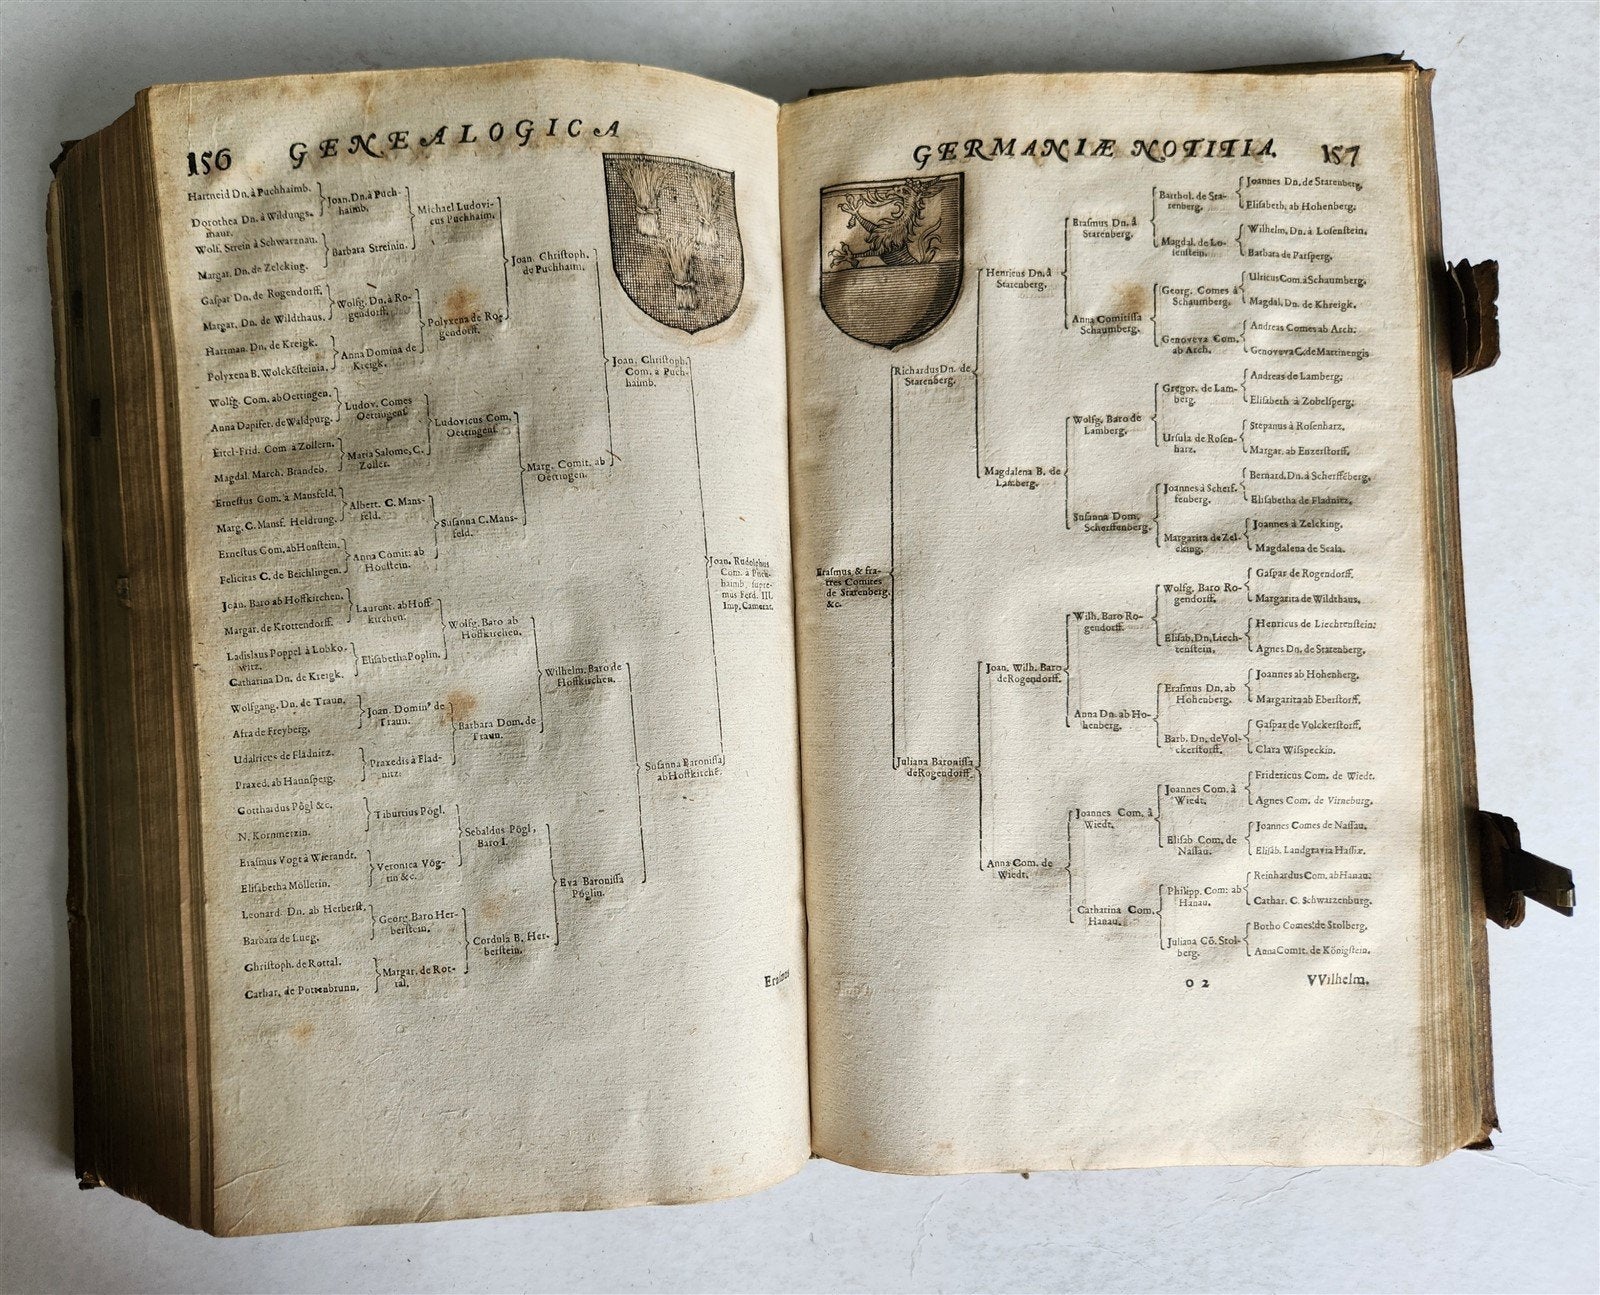 156 GENEALOGICA
Hartneid Dn. à Puchhaimb.
Dorothea Dn. à Wildungs-
maur.
Wolf. Strein à Schwarznau.
Margar. Dn. de Zelcking.
Gaspar Dn. de Rogendorff.
Margar. Dn. de Wildthaus.
Hartman. Dn. de Kreigk.
Polyxena B. Wolckesteinia.
Wolfg. Com. ab Oettingen.
Anna Dapifer. de Waldpurg.
Eitel-Frid. Com à Zollern.
Magdal. March. Brandeb.
Ernestus Com. à Mansfeld.
Marg. C. Mansf. Heldrung.
Ernestus Com. ab Honstein.
Felicitas C. de Beichlingen.
Joan. Baro ab Hoffkirchen.
Margar. de Krottendorff.
Ladislaus Poppel à Lobko-
witz.
Catharina Dn. de Kreigk.
Wolfgang. Dn. de Traun.
Afra de Freyberg.
Udalricus de Fladnitz.
Praxed. ab Haunsperg.
Gotthardus Pögl &c.
N. Kornmetzin.
Erasmus Vogt à Wierandt.
Elisabetha Möllerin.
Leonard. Dn. ab Herberst.
Barbara de Lueg.
Christoph. de Rottal.
Cathar. de Pottenbrunn.
Joan. Dn. à Puch-
haimb.
Barbara Streinin.
Wolfg. Dn. à Ro-
gendorff.
Anna Domina de
Kreigk.
Ludov. Comes
Oettingens.
Maria Salome, C.
Zoller.
Albert. C. Mans-
feld.
Anna Comit. ab
Honstein.
Laurent. ab Hoff-
kirchen.
Elisabetha Poplin.
Joan. Domin' de
Traun.
Praxedis à Flad-
nitz.
Tiburtius Pögl.
Veronica Vög-
tin &c.
Georg. Baro Her-
berstein.
Margar. de Rot-
tal.
Michael Ludovi-
cus Puchhaim.
Polyxena de Ro-
gendorff.
Ludovicus Com.
Oettingens.
Susanna C. Mans-
feld.
Wolfg. Baro ab
Hoffkirchen.
Barbara Dom. de
Traun.
Sebaldus Pögl,
Baro I.
Cordula B. Her-
berstein.
Joan. Christoph.
de Puchhaim.
Marg. Comit. ab
Oettingen.
Wilhelm. Baro de
Hoffkirchen.
Eva Baronissa
Pöglin.
Joan. Christoph.
Com. à Puch-
haimb.
Susanna Baronissa
ab Hoffkirche.
Joan. Rudolphus
Com. à Puch-
haimb, supre-
mus Ferd. III.
Imp. Camerar.
Erasmus
GERMANIÆ NOTITIA. 157
Erasmus & fra-
tres Comites
de Starenberg.
&c.
Richardus Dn. de
Starenberg.
Juliana Baronissa
de Rogendorff.
Henricus Dn. à
Starenberg.
Magdalena B. de
Lamberg.
Joan. Wilh. Baro
de Rogendorff.
Anna Com. de
Wiedt.
Erasmus Dn. à
Starenberg.
Anna Comitissa
Schaumberg.
Wolfg. Baro de
Lamberg.
Susanna Dom.
Scherffenberg.
Wilh. Baro Ro-
gendorff.
Anna Dn. ab Ho-
henberg.
Joannes Com. à
Wiedt.
Catharina Com.
Hanau.
Barthol. de Sta-
renberg.
Magdal. de Lo-
senstein.
Georg. Comes à
Schaumberg.
Genoveva Com.
ab Arch.
Gregor. de Lam-
berg.
Ursula de Rosen-
harz.
Joannes à Scherf-
fenberg.
Margarita de Zel-
cking.
Wolfg. Baro Ro-
gendorff.
Elisab. Dn. Liech-
tenstein.
Erasmus Dn. ab
Hohenberg.
Barb. Dn. de Vol-
ckerstorff.
Joannes Com. à
Wiedt.
Elisab Com. de
Nassau.
Philipp. Com: ab
Hanau.
Juliana Cō. Stol-
berg.
Joannes Dn. de Starenberg.
Elisabeth. ab Hohenberg.
Wilhelm. Dn. à Losenstein.
Barbara de Parsperg.
Ulricus Com. à Schaumberg.
Magdal. Dn. de Khreigk.
Andreas Comes ab Arch.
Genoveva C. de Martinengis
Andreas de Lamberg.
Elisabeth à Zobelsperg.
Stepanus à Rosenharz.
Margar. ab Enzerstorff.
Bernard. Dn. à Scherffēberg.
Elisabetha de Fladnitz.
Joannes à Zelcking.
Magdalena de Scala.
Gaspar de Rogendorff.
Margarita de Wildthaus.
Henricus de Liechtenstein.
Agnes Dn. de Starenberg.
Joannes ab Hohenberg.
Margarita ab Eberstorff.
Gaspar de Volckerstorff.
Clara Wispeckin.
Fridericus Com. de Wiedt.
Agnes Com. de Virneburg.
Joannes Comes de Nassau.
Elisab. Landgravia Hassiæ.
Reinhardus Com. ab Hanau.
Cathar. C. Schwarzenburg.
Botho Comes de Stolberg.
Anna Comit. de Königstein.
O 2 VVilhelm.